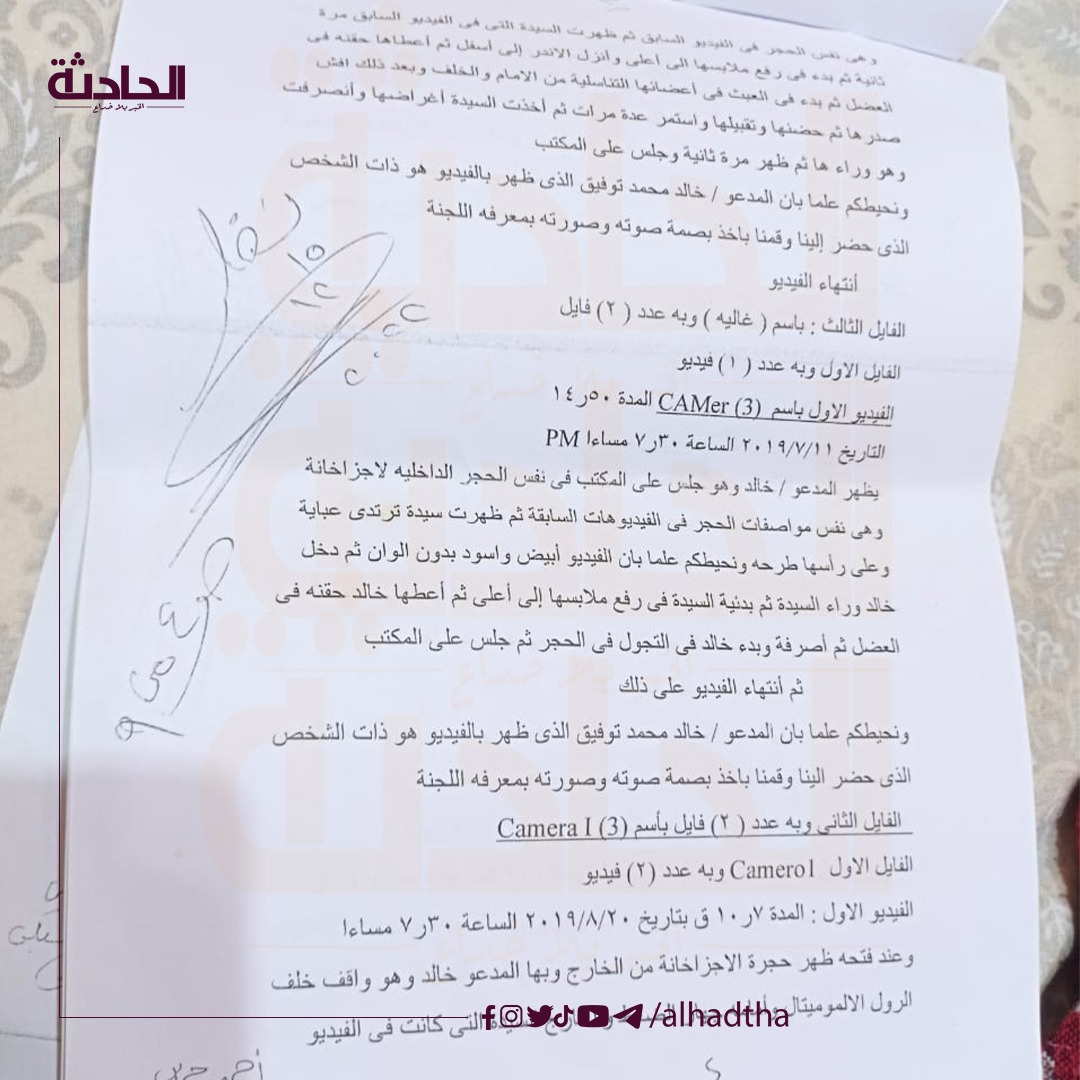 الحادثة
الخبر بلا خداع
وهى نفس الحجر فى الفيديو السابق ثم ظهرت السيدة التى فى الفيديو السابق مرة
ثانية ثم بدء فى رفع ملابسها الى أعلى وأنزل الاندر إلى أسفل ثم أعطاها حقنه فى
العضل ثم بدء فى العبث فى أعضائها التناسلية من الامام والخلف وبعد ذلك افش
صدرها ثم حضنها وتقبيلها واستمر عدة مرات ثم أخذت السيدة أغراضها وأنصرفت
وهو وراء ها ثم ظهر مرة ثانية وجلس على المكتب
ونحيطكم علما بان المدعو / خالد محمد توفيق الذى ظهر بالفيديو هو ذات الشخص
الذى حضر إلينا وقمنا باخذ بصمة صوته وصورته بمعرفه اللجنة
أنتهاء الفيديو
الفايل الثالث : باسم ( غاليه ) وبه عدد ( ٢ ) فايل
الفايل الاول وبه عدد ( ١ ) فيديو
الفيديو الاول باسم CAMer (3) المدة ٥٠ر١٤
التاريخ ٢٠١٩/٧/١١ الساعة ٣٠ر٧ مساءا PM
يظهر المدعو / خالد وهو جلس على المكتب فى نفس الحجر الداخليه لاجزاخانة
وهى نفس مواصفات الحجر فى الفيديوهات السابقة ثم ظهرت سيدة ترتدى عباية
وعلى رأسها طرحه ونحيطكم علما بان الفيديو أبيض واسود بدون الوان ثم دخل
خالد وراء السيدة ثم بدئية السيدة فى رفع ملابسها إلى أعلى ثم أعطها خالد حقنه فى
العضل ثم أصرفة وبدء خالد فى التجول فى الحجر ثم جلس على المكتب
ثم أنتهاء الفيديو على ذلك
ونحيطكم علما بان المدعو / خالد محمد توفيق الذى ظهر بالفيديو هو ذات الشخص
الذى حضر الينا وقمنا باخذ بصمة صوته وصورته بمعرفه اللجنة
الفايل الثانى وبه عدد ( ٢ ) فايل بأسم Camera I (3)
الفايل الاول Camero1 وبه عدد (٢) فيديو
الفيديو الاول : المدة ٧ر١٠ ق بتاريخ ٢٠١٩/٨/٢٠ الساعة ٣٠ر٧ مساءا
وعند فتحه ظهر حجرة الاجزاخانة من الخارج وبها المدعو خالد وهو واقف خلف
الرول الالموميتال
السيدة التى كانت فى الفيديو
/alhadtha